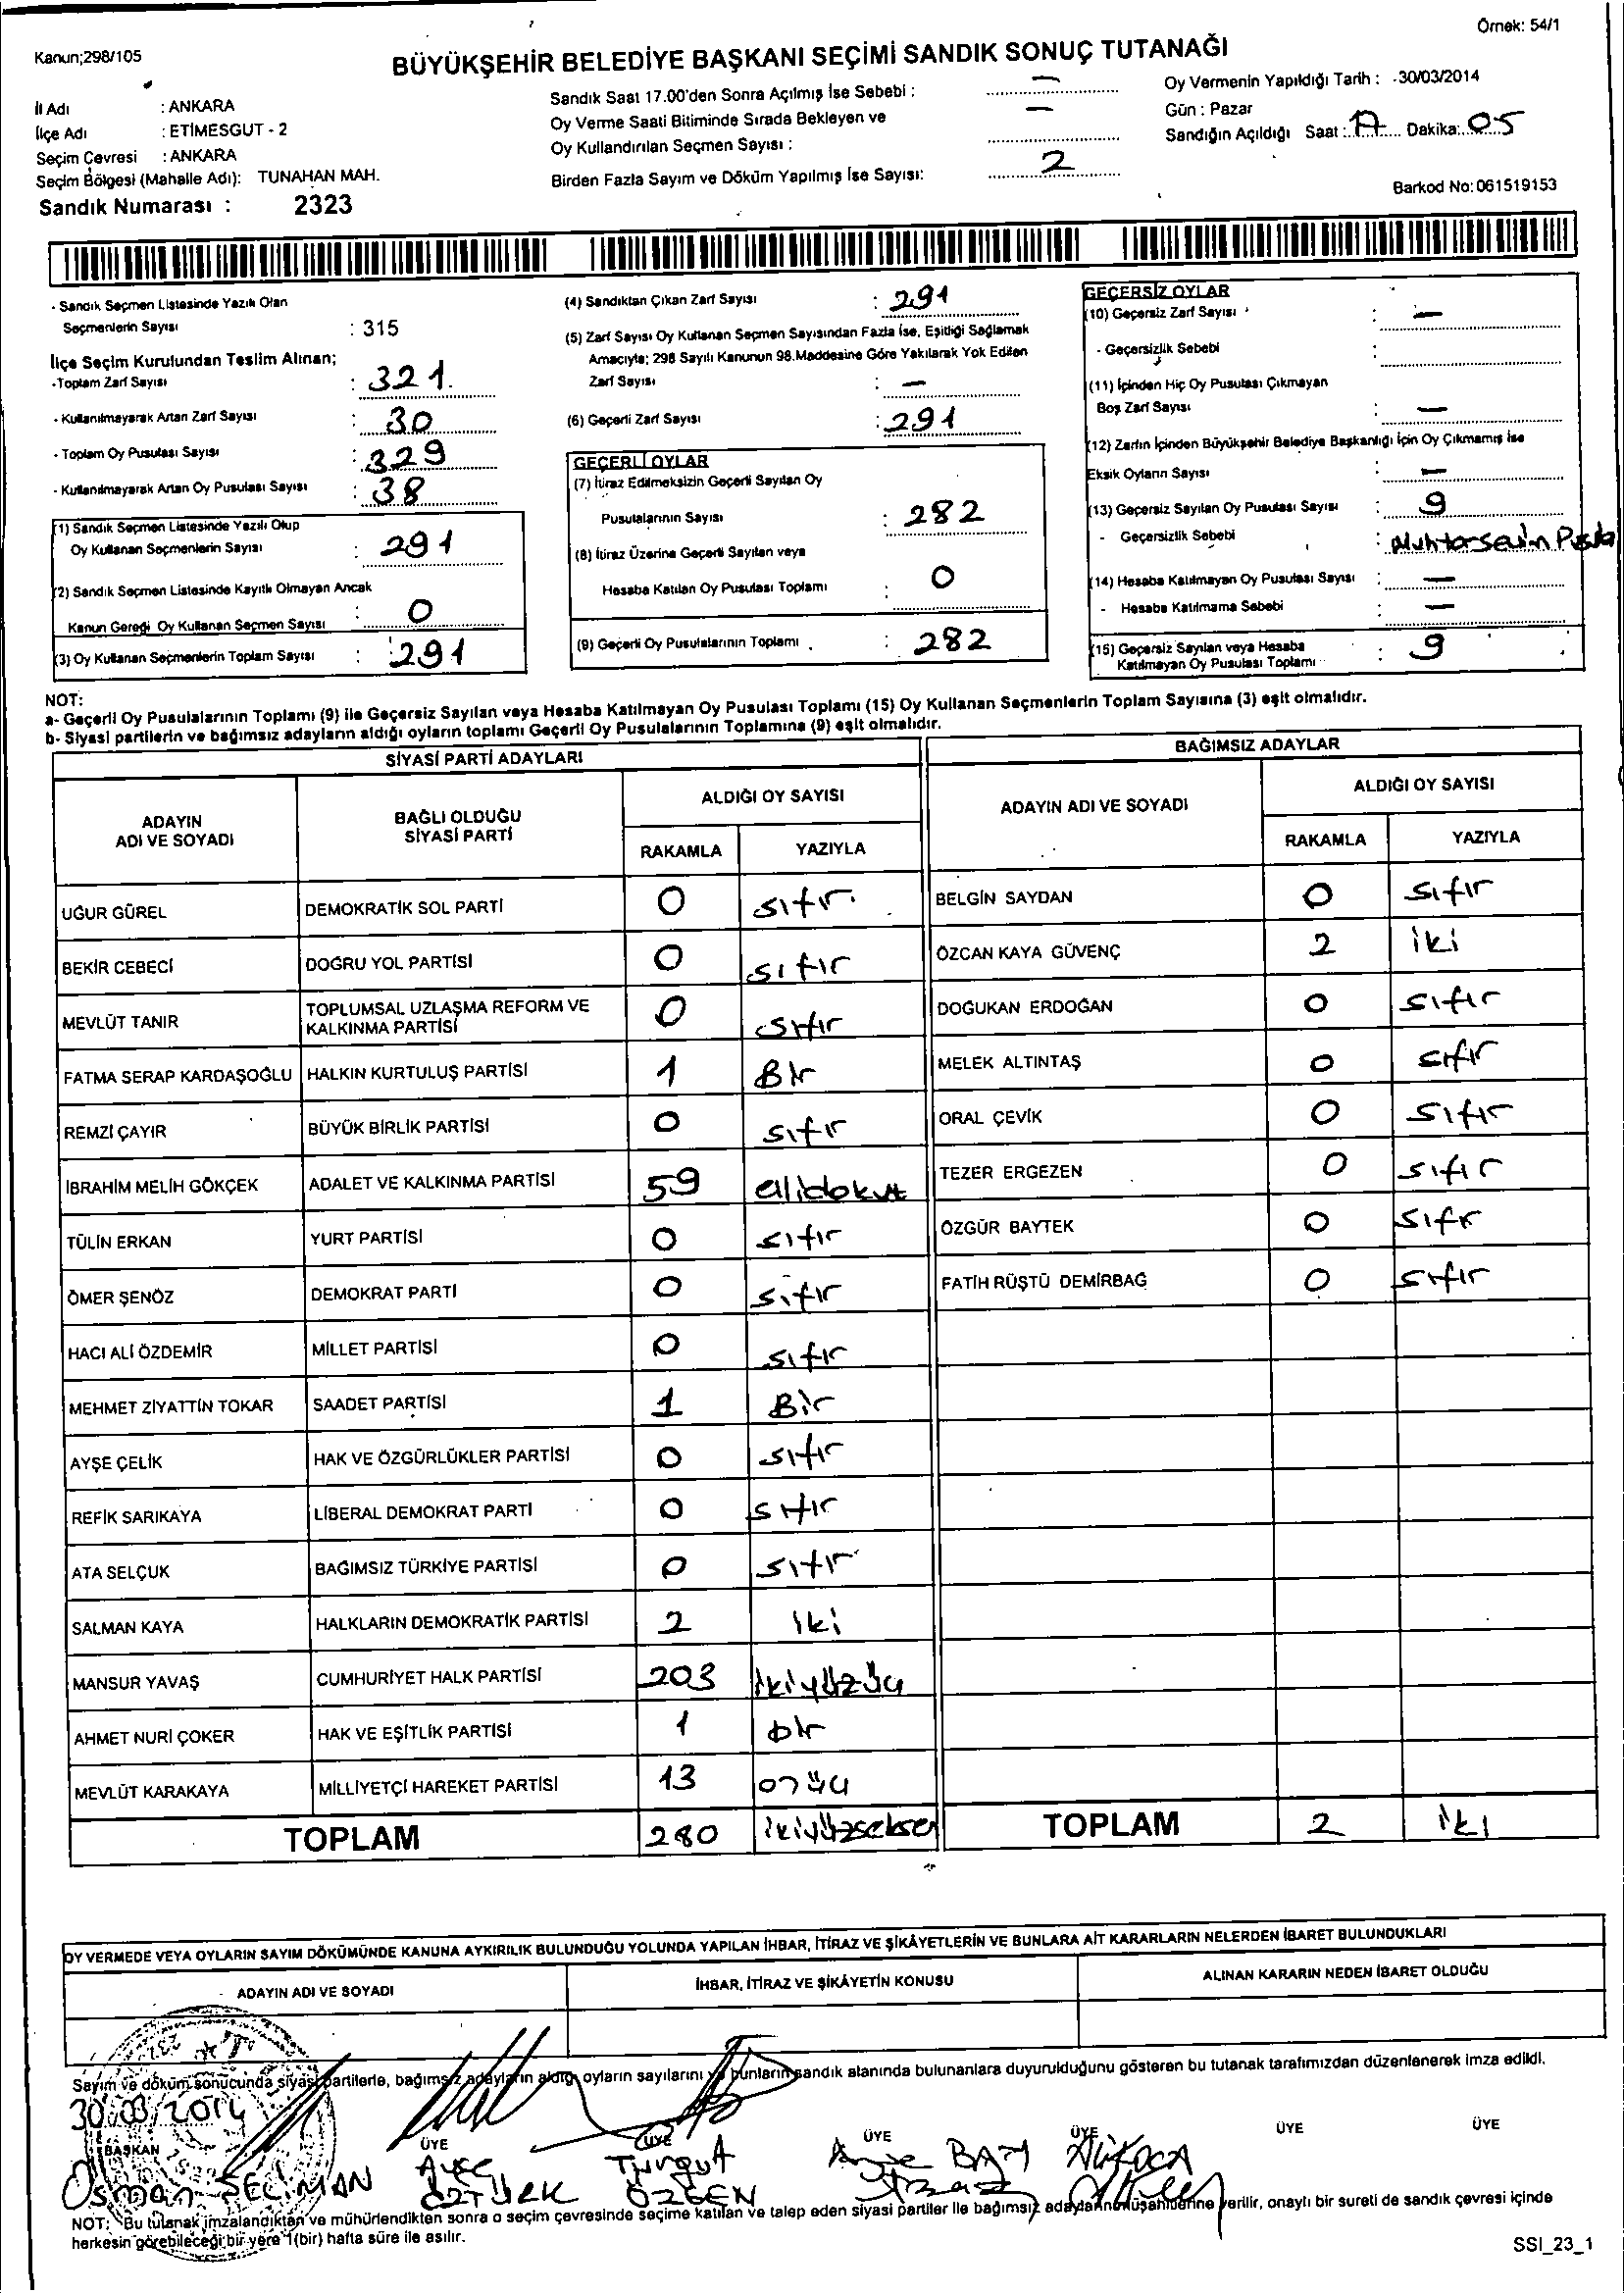 Örnek: 54/1
Kanun;298/105
BÜYÜKŞEHİR BELEDİYE BAŞKANI SEÇİMİ SANDIK SONUÇ TUTANAĞI
İl Adı : ANKARA
İlçe Adı : ETİMESGUT - 2
Seçim Çevresi : ANKARA
Seçim Bölgesi (Mahalle Adı): TUNAHAN MAH.
Sandık Numarası : 2323
Sandık Saat 17.00'den Sonra Açılmış İse Sebebi : —
Oy Verme Saati Bitiminde Sırada Bekleyen ve
Oy Kullandırılan Seçmen Sayısı : —
Birden Fazla Sayım ve Döküm Yapılmış İse Sayısı: 2
Oy Vermenin Yapıldığı Tarih : 30/03/2014
Gün : Pazar
Sandığın Açıldığı Saat : 17 Dakika: 05
Barkod No: 061519153
- Sandık Seçmen Listesinde Yazılı Olan
Seçmenlerin Sayısı : 315
İlçe Seçim Kurulundan Teslim Alınan;
-Toplam Zarf Sayısı : 321
- Kullanılmayarak Artan Zarf Sayısı : 30
- Toplam Oy Pusulası Sayısı : 329
- Kullanılmayarak Artan Oy Pusulası Sayısı : 38
(1) Sandık Seçmen Listesinde Yazılı Olup
Oy Kullanan Seçmenlerin Sayısı : 291
(2) Sandık Seçmen Listesinde Kayıtlı Olmayan Ancak
Kanun Gereği Oy Kullanan Seçmen Sayısı : 0
(3) Oy Kullanan Seçmenlerin Toplam Sayısı : 291
(4) Sandıktan Çıkan Zarf Sayısı : 291
(5) Zarf Sayısı Oy Kullanan Seçmen Sayısından Fazla İse, Eşitliği Sağlamak
Amacıyla; 298 Sayılı Kanunun 98.Maddesine Göre Yakılarak Yok Edilen
Zarf Sayısı : —
(6) Geçerli Zarf Sayısı : 291
GEÇERLİ OYLAR
(7) İtiraz Edilmeksizin Geçerli Sayılan Oy
Pusulalarının Sayısı : 282
(8) İtiraz Üzerine Geçerli Sayılan veya
Hesaba Katılan Oy Pusulası Toplamı : 0
(9) Geçerli Oy Pusulalarının Toplamı : 282
GEÇERSİZ OYLAR
(10) Geçersiz Zarf Sayısı : —
- Geçersizlik Sebebi :
(11) İçinden Hiç Oy Pusulası Çıkmayan
Boş Zarf Sayısı : —
(12) Zarfın İçinden Büyükşehir Belediye Başkanlığı İçin Oy Çıkmamış İse
Eksik Oyların Sayısı : —
(13) Geçersiz Sayılan Oy Pusulası Sayısı : 9
- Geçersizlik Sebebi :
(14) Hesaba Katılmayan Oy Pusulası Sayısı : —
- Hesaba Katılmama Sebebi : —
(15) Geçersiz Sayılan veya Hesaba
Katılmayan Oy Pusulası Toplamı : 9
NOT:
a- Geçerli Oy Pusulalarının Toplamı (9) ile Geçersiz Sayılan veya Hesaba Katılmayan Oy Pusulası Toplamı (15) Oy Kullanan Seçmenlerin Toplam Sayısına (3) eşit olmalıdır.
b- Siyasi partilerin ve bağımsız adayların aldığı oyların toplamı Geçerli Oy Pusulalarının Toplamına (9) eşit olmalıdır.
SİYASİ PARTİ ADAYLARI
ADAYIN ADI VE SOYADI BAĞLI OLDUĞU SİYASİ PARTİ ALDIĞI OY SAYISI
RAKAMLA YAZIYLA
UĞUR GÜREL DEMOKRATİK SOL PARTİ 0 sıfır
BEKİR CEBECİ DOĞRU YOL PARTİSİ 0 sıfır
MEVLÜT TANIR TOPLUMSAL UZLAŞMA REFORM VE KALKINMA PARTİSİ 0 sıfır
FATMA SERAP KARDAŞOĞLU HALKIN KURTULUŞ PARTİSİ 1 Bir
REMZİ ÇAYIR BÜYÜK BİRLİK PARTİSİ 0 sıfır
İBRAHİM MELİH GÖKÇEK ADALET VE KALKINMA PARTİSİ 59 ellidokuz
TÜLİN ERKAN YURT PARTİSİ 0 sıfır
ÖMER ŞENÖZ DEMOKRAT PARTİ 0 sıfır
HACI ALİ ÖZDEMİR MİLLET PARTİSİ 0 sıfır
MEHMET ZİYATTİN TOKAR SAADET PARTİSİ 1 Bir
AYŞE ÇELİK HAK VE ÖZGÜRLÜKLER PARTİSİ 0 sıfır
REFİK SARIKAYA LİBERAL DEMOKRAT PARTİ 0 sıfır
ATA SELÇUK BAĞIMSIZ TÜRKİYE PARTİSİ 0 sıfır
SALMAN KAYA HALKLARIN DEMOKRATİK PARTİSİ 2 iki
MANSUR YAVAŞ CUMHURİYET HALK PARTİSİ 203 ikiyüzüç
AHMET NURİ ÇOKER HAK VE EŞİTLİK PARTİSİ 1 bir
MEVLÜT KARAKAYA MİLLİYETÇİ HAREKET PARTİSİ 13 onüç
TOPLAM 280 ikiyüzseksen
BAĞIMSIZ ADAYLAR
ADAYIN ADI VE SOYADI ALDIĞI OY SAYISI
RAKAMLA YAZIYLA
BELGİN SAYDAN 0 sıfır
ÖZCAN KAYA GÜVENÇ 2 iki
DOĞUKAN ERDOĞAN 0 sıfır
MELEK ALTINTAŞ 0 sıfır
ORAL ÇEVİK 0 sıfır
TEZER ERGEZEN 0 sıfır
ÖZGÜR BAYTEK 0 sıfır
FATİH RÜŞTÜ DEMİRBAĞ 0 sıfır
TOPLAM 2 iki
OY VERMEDE VEYA OYLARIN SAYIM DÖKÜMÜNDE KANUNA AYKIRILIK BULUNDUĞU YOLUNDA YAPILAN İHBAR, İTİRAZ VE ŞİKÂYETLERİN VE BUNLARA AİT KARARLARIN NELERDEN İBARET BULUNDUKLARI
ADAYIN ADI VE SOYADI İHBAR, İTİRAZ VE ŞİKÂYETİN KONUSU ALINAN KARARIN NEDEN İBARET OLDUĞU
Sayım ve döküm sonucunda siyasi partilerle, bağımsız adayların aldığı oyların sayılarını ve bunların sandık alanında bulunanlara duyurulduğunu gösteren bu tutanak tarafımızdan düzenlenerek imza edildi.
30/03/2014
BAŞKAN ÜYE ÜYE ÜYE ÜYE ÜYE ÜYE
Osman SEÇİMAN Ayşe ÖZTÜRK Turgut ÖZGEN
NOT: Bu tutanak imzalandıktan ve mühürlendikten sonra o seçim çevresinde seçime katılan ve talep eden siyasi partiler ile bağımsız adayların müşahitlerine verilir, onaylı bir sureti de sandık çevresi içinde
herkesin görebileceği bir yere 1(bir) hafta süre ile asılır.
SSI_23_1